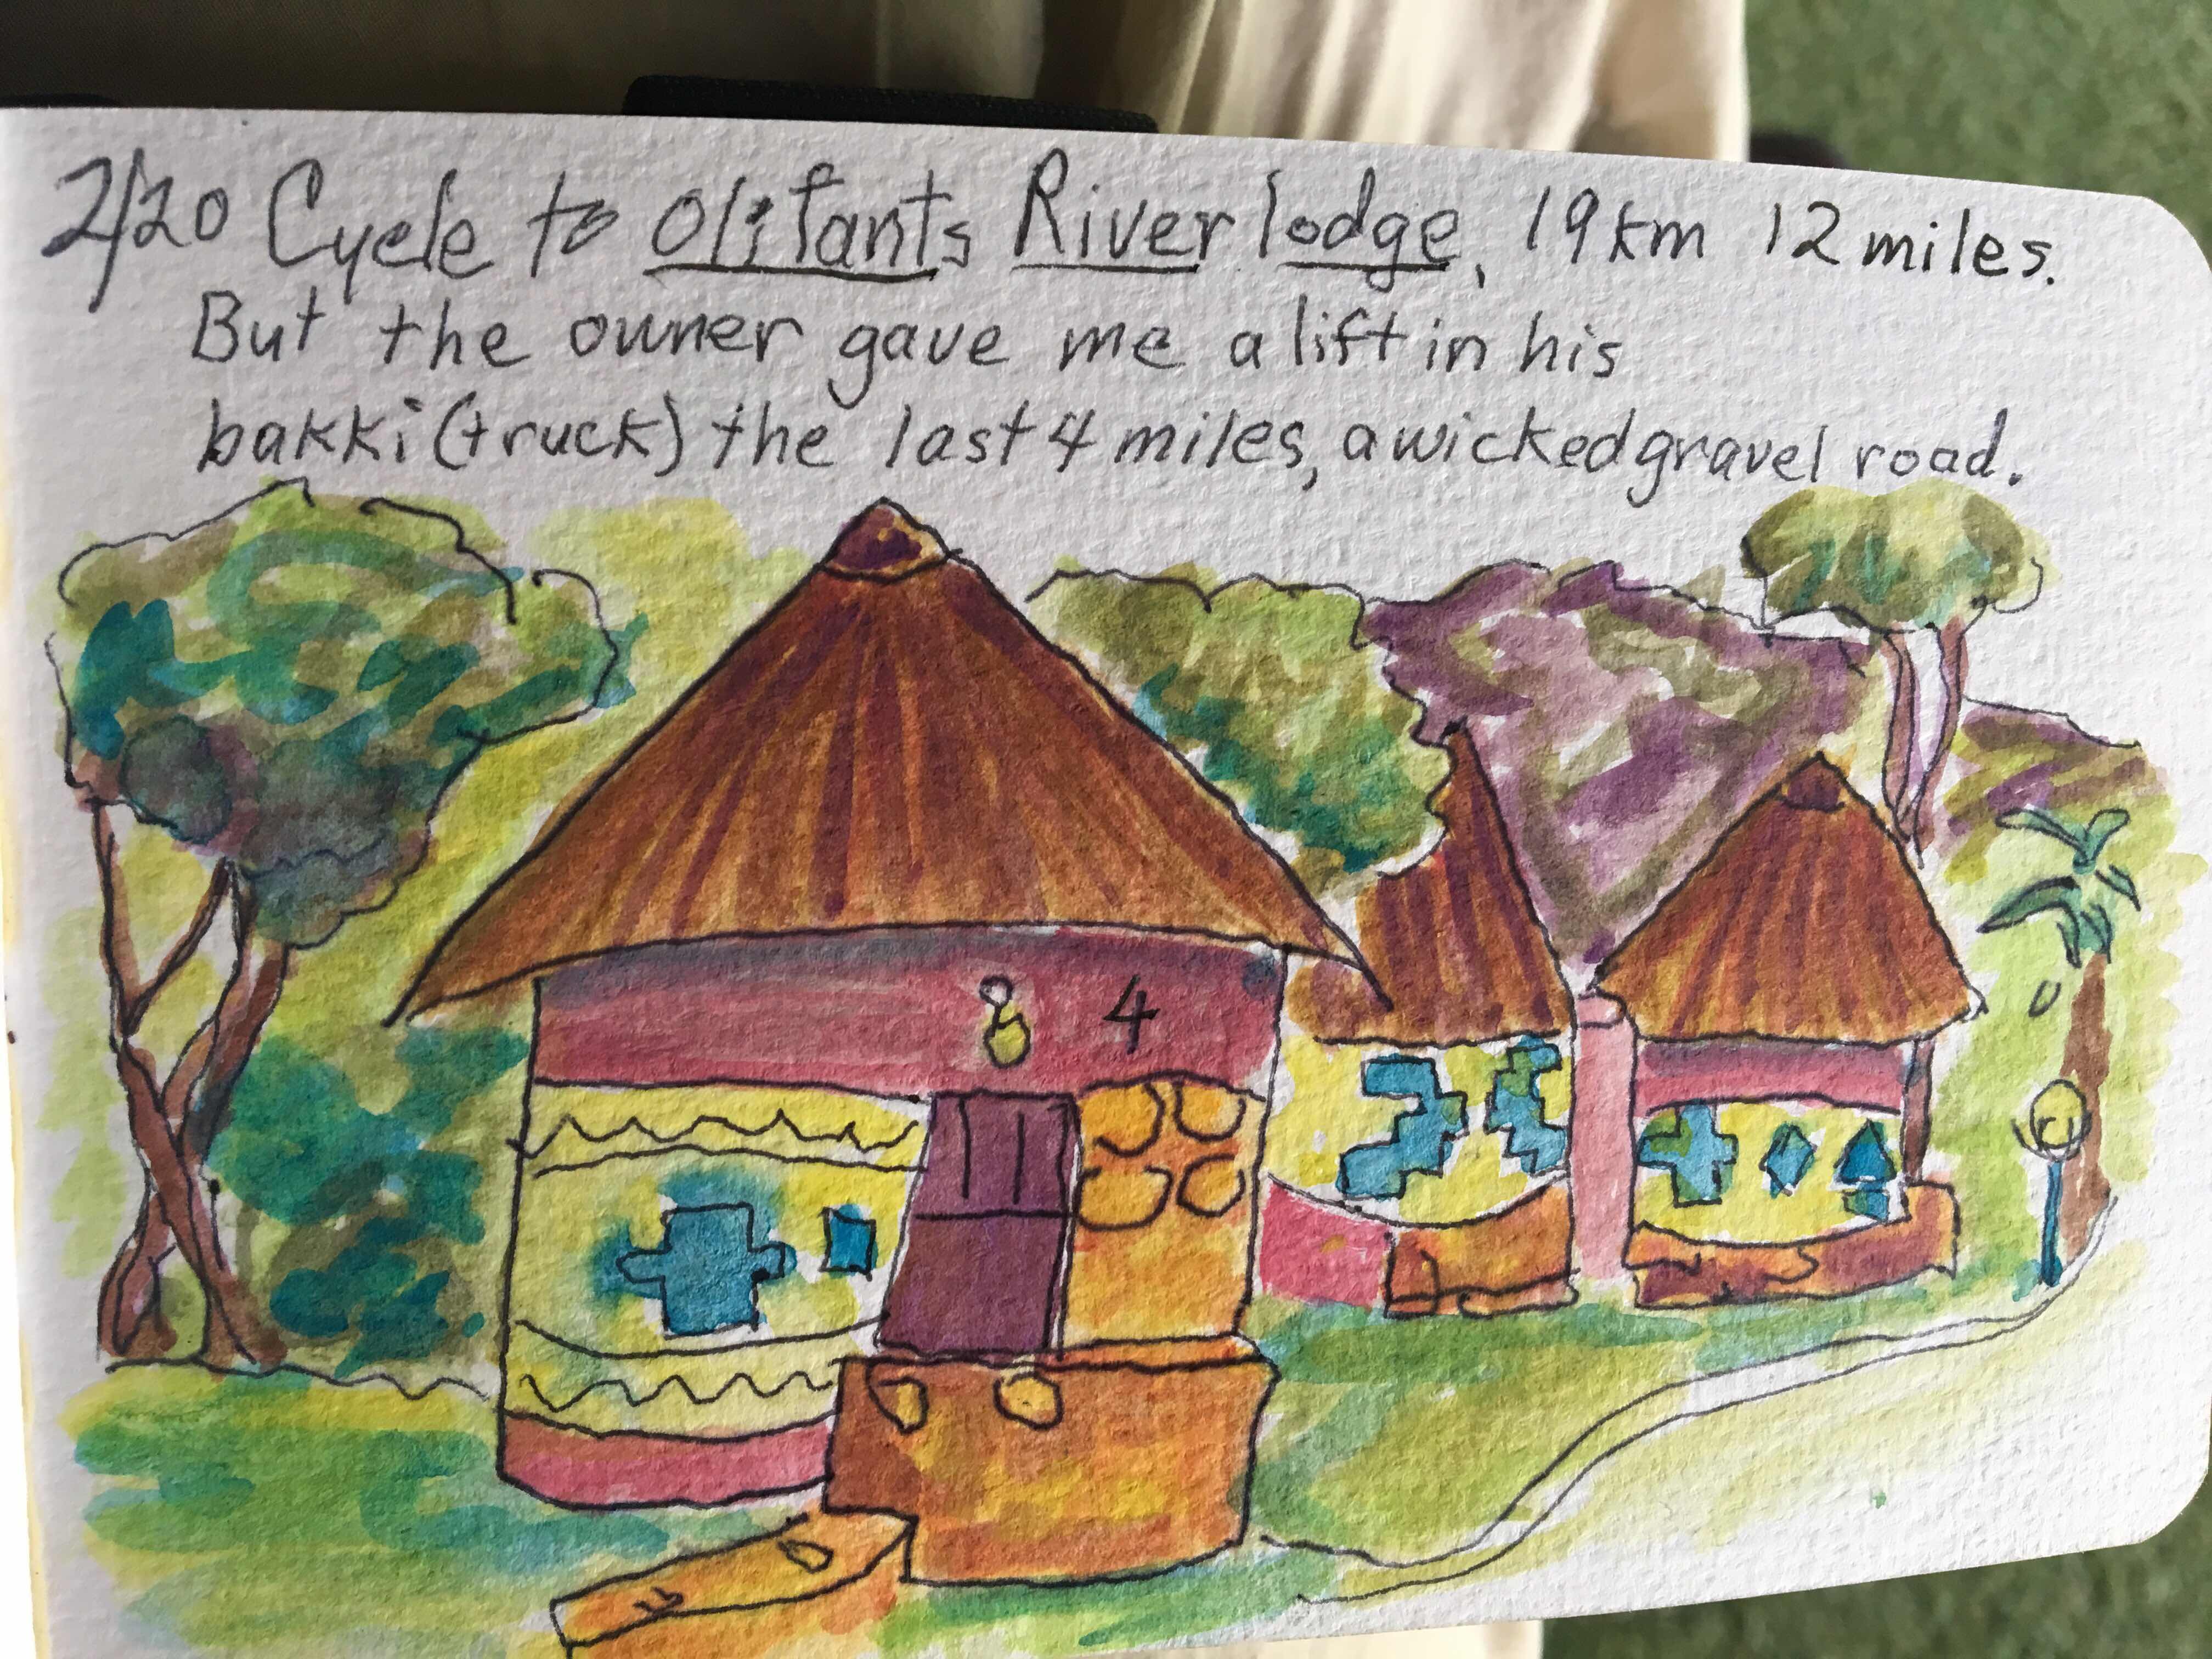 2/20 Cycle to Olifants River lodge, 19 km 12 miles.
But the owner gave me a lift in his
bakki (truck) the last 4 miles, a wicked gravel road.
4